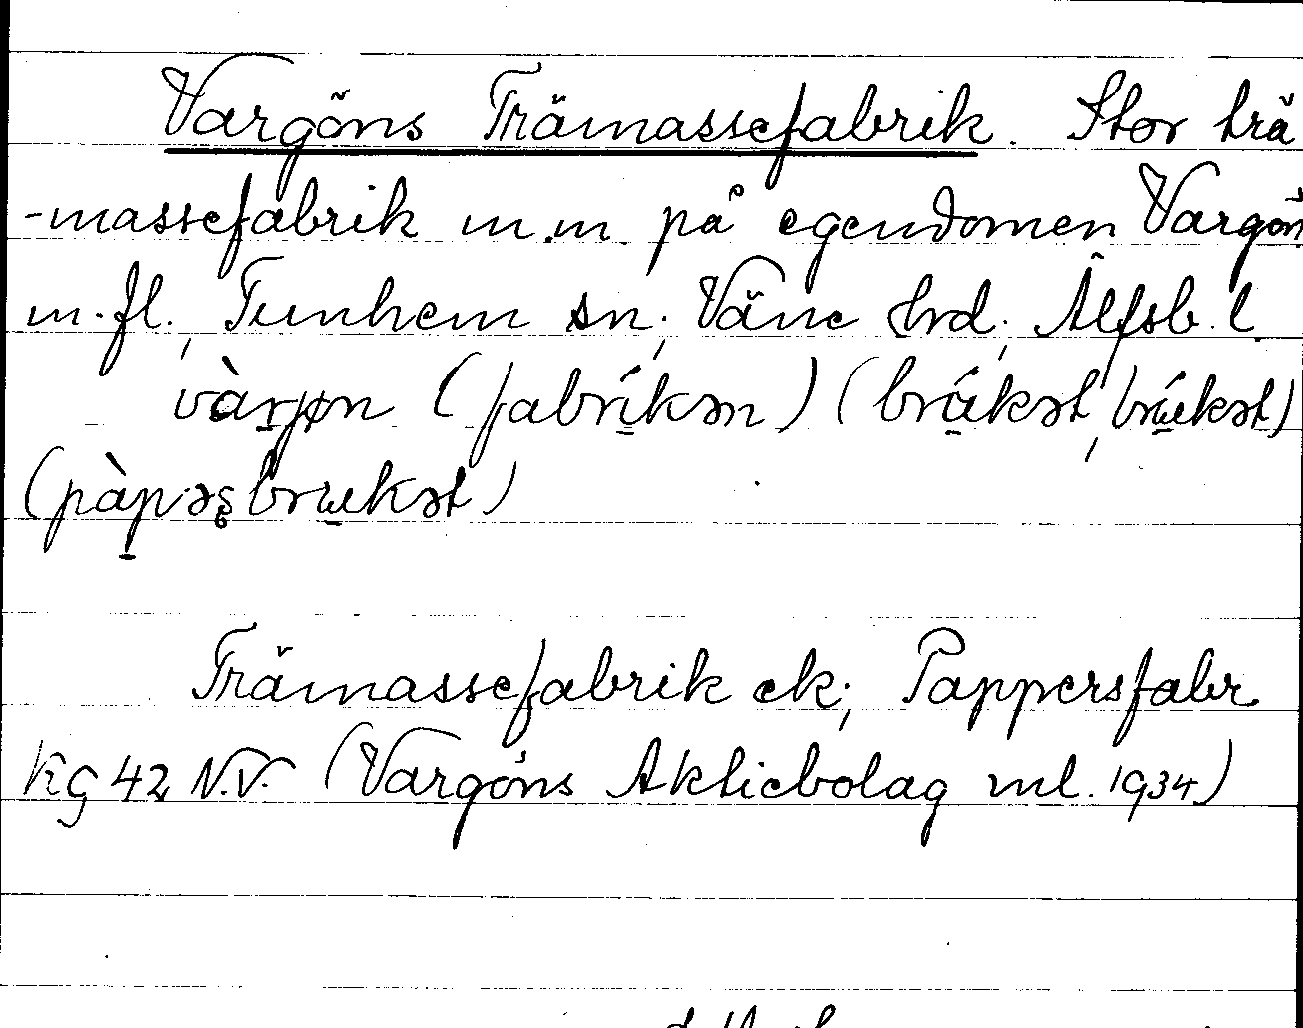 Vargöns Trämassefabrik. Stor trä
-massefabrik m.m. på egendomen Vargön
m.fl., Tunhem sn; Väne hrd; Älfsb. l.
vàrjøn (fabríkən) (brúkət, brúkət)
(pàpəʂbrukət)
Trämassefabrik ek; Pappersfabr.
Kg 42 N.V. (Vargöns Aktiebolag ml. 1934)